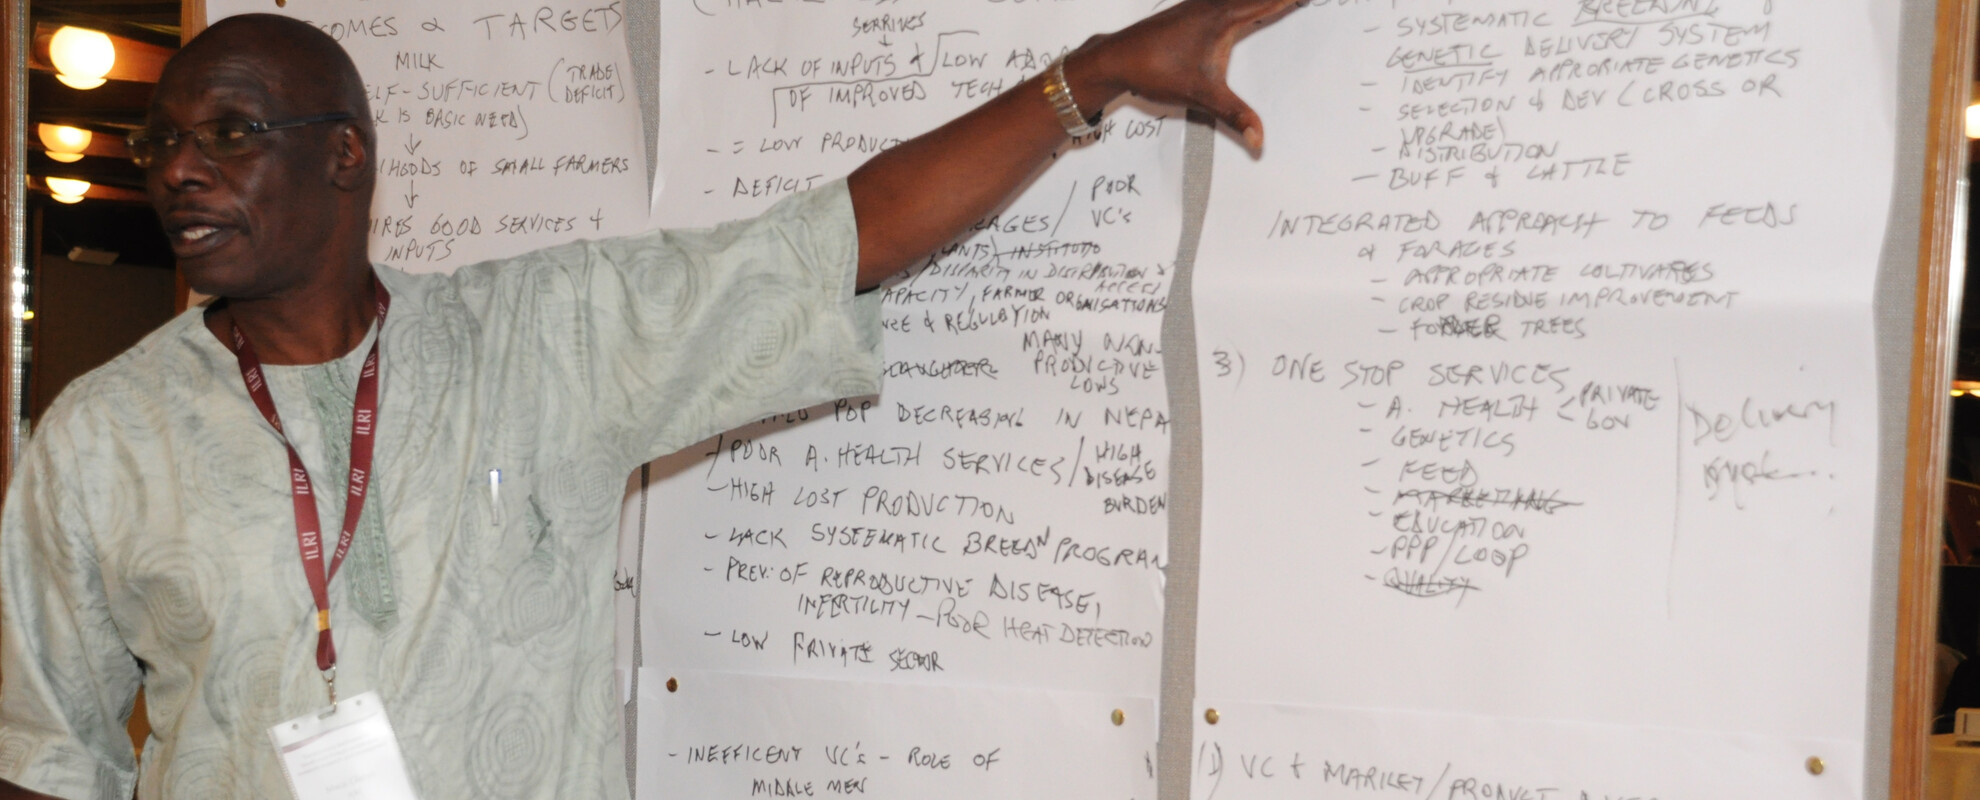 COMES & TARGETS
MILK
ELF-SUFFICIENT (TRADE DEFICIT)
K IS BASIC NEED)
IHOODS OF SMALL FARMERS
IRES GOOD SERVICES &
INPUTS
ILRI
ILRI
ILRI
ILRI
ILRI
ILRI
SERVICES
- LACK OF INPUTS & LOW
OF IMPROVED TECH
- = LOW PRODUCT
HIGH COST
- DEFICIT
/ POOR
VC's
AGES/
ANTS)
/DISPARITY IN DISTRIBUTION &
ACCESS
APACITY, FARMER ORGANISATIONS
& REGULATION
MANY NON-
PRODUCTIVE
COWS
POP DECREASING IN NEPA
- POOR A. HEALTH SERVICES / HIGH
DISEASE
BURDEN
- HIGH COST PRODUCTION
- LACK SYSTEMATIC BREEDN PROGRAM
- PREV. OF REPRODUCTIVE DISEASE,
INFERTILITY - POOR HEAT DETECTION
- LOW PRIVATE SECTOR
- INEFFICENT VC's - ROLE OF
MIDDLE MEN
- SYSTEMATIC BREEDING
GENETIC DELIVERY SYSTEM
- IDENTIFY APPRORIATE GENETICS
- SELECTION & DEV (CROSS OR
UPGRADE)
- DISTRIBUTION
- BUFF & CATTLE
INTEGRATED APPROACH TO FEEDS
& FORAGES
- APPROPRIATE CULTIVARES
- CROP RESIDUE IMPROVEMENT
- FODDER TREES
3) ONE STOP SERVICES
- A. HEALTH < PRIVATE
GOV
- GENETICS
- FEED
- MARKETING
- EDUCATION
- PPP/COOP
- QUALITY
Delivery
(1) VC & MARKET/PRODUCT